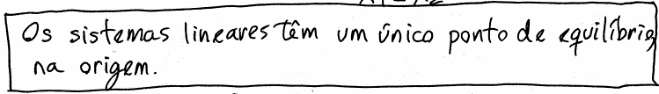 Os sistemas lineares têm um único ponto de equilíbrio
na origem.